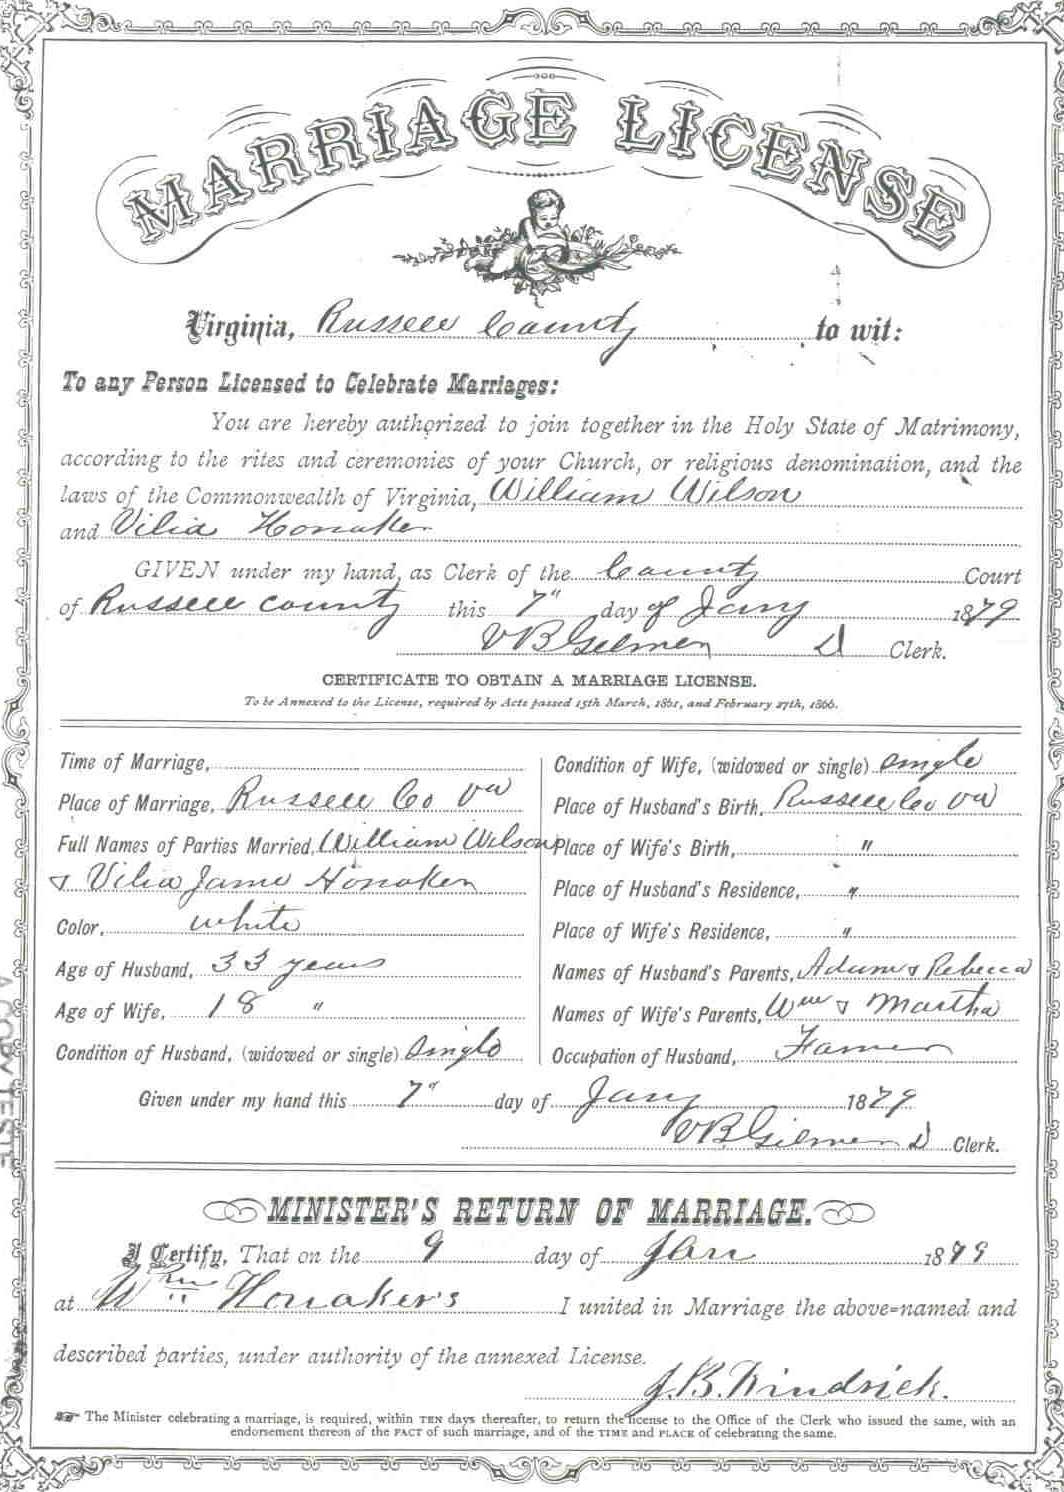 MARRIAGE LICENSE
Virginia, Russell County to wit:
To any Person Licensed to Celebrate Marriages:
You are hereby authorized to join together in the Holy State of Matrimony,
according to the rites and ceremonies of your Church, or religious denomination, and the
laws of the Commonwealth of Virginia, William Wilson
and Vilia Honaker
GIVEN under my hand, as Clerk of the County Court
of Russell County this 7" day of Jany 1879
VB Gilmer D Clerk.
CERTIFICATE TO OBTAIN A MARRIAGE LICENSE.
To be Annexed to the License, required by Acts passed 15th March, 1861, and February 27th, 1866.
Time of Marriage,
Place of Marriage, Russell Co Va
Full Names of Parties Married, William Wilson
& Vilia Jane Honaker
Color, white
Age of Husband, 33 years
Age of Wife, 18 "
Condition of Husband, (widowed or single) Single
Condition of Wife, (widowed or single) Single
Place of Husband's Birth, Russell Co Va
Place of Wife's Birth, "
Place of Husband's Residence, "
Place of Wife's Residence, "
Names of Husband's Parents, Adam & Rebecca
Names of Wife's Parents, Wm & Martha
Occupation of Husband, Farmer
Given under my hand this 7" day of Jany 1879
VB Gilmer D Clerk.
MINISTER'S RETURN OF MARRIAGE.
I Certify, That on the 9 day of Jan 1879
at Wm Honaker's I united in Marriage the above=named and
described parties, under authority of the annexed License.
J. B.
☞ The Minister celebrating a marriage, is required, within TEN days thereafter, to return the license to the Office of the Clerk who issued the same, with an
endorsement thereon of the FACT of such marriage, and of the TIME and PLACE of celebrating the same.
A COPY TESTE